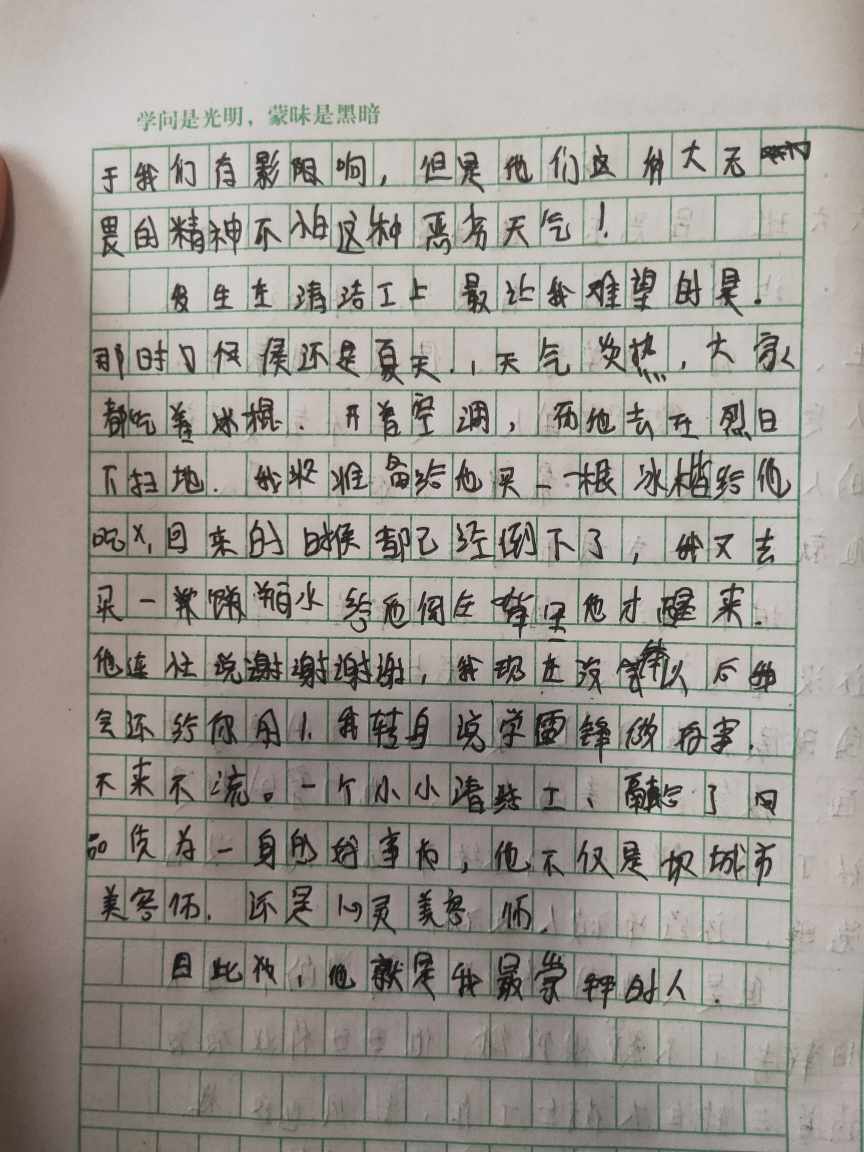 学问是光明，蒙昧是黑暗
于我们有影响，但是他们这种大无
畏的精神不怕这种恶劣天气！
发生在清洁工上最让我难望的是.
那时候还是夏天.，天气炎热，大家
都吃着冰棍.开着空调，而他去在烈日
下扫地.我准备给他买一根冰棍给他
吃，回来的时候都已经倒下了，我又去
买一瓶水给他他才醒来.
他连任说谢谢谢谢，我现在没以后
会还给你用！我转身说学雷锋做好事.
不来不流。一个小小清洁工、融合了
品质为一身的好事，他不仅是城市
美容师.还是心灵美容师.
因此，他就是我最崇拜的人.